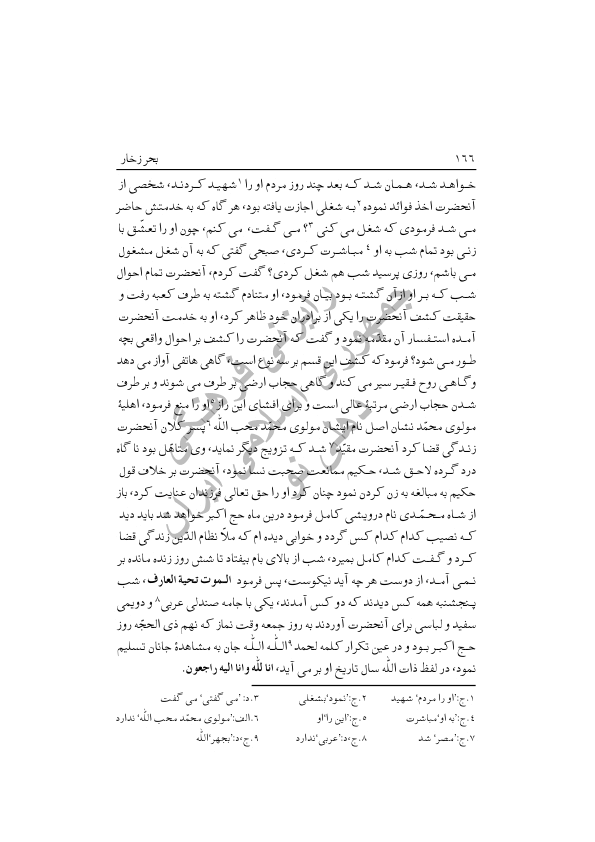 ۱۶۶ بحر زخار
خواهد شد، همان شد که بعد چند روز مردم او را۱ شهید کردند، شخصی از
آنحضرت اخذ فوائد نموده۲ به شغلی اجازت یافته بود، هر گاه که به خدمتش حاضر
می شد فرمودی که شغل می کنی۳؟ می گفت، می کنم، چون او را تعشّق با
زنی بود تمام شب به او۴ مباشرت کردی، صبحی گفتی که به آن شغل مشغول
می باشم، روزی پرسید شب هم شغل کردی؟ گفت کردم، آنحضرت تمام احوال
شب که بر او از آن گشته بود بیان فرمود، او متنادم گشته به طرف کعبه رفت و
حقیقت کشف آنحضرت را یکی از برادران خود ظاهر کرد، او به خدمت آنحضرت
آمده استفسار آن مقدّمه نمود و گفت که آنحضرت را کشف بر احوال واقعی بچه
طور می شود؟ فرمود که کشف این قسم بر سه نوع است، گاهی هاتفی آواز می دهد
و گاهی روح فقیر سیر می کند و گاهی حجاب ارضی بر طرف می شوند و بر طرف
شدن حجاب ارضی مرتبهٔ عالی است و برای افشای این راز۵ او را منع فرمود، اهلیهٔ
مولوی محمّد نشان اصل نام ایشان مولوی محمّد محب الله۶ پسر کلان آنحضرت
زندگی قضا کرد آنحضرت مقیّد۷ شد که تزویج دیگر نماید، وی متاهّل بود تا گاه
درد گرده لاحق شد، حکیم ممانعت صحبت نسا نمود، آنحضرت بر خلاف قول
حکیم به مبالغه به زن کردن نمود چنان کرد او را حق تعالی فرزندان عنایت کرد، باز
از شاه محمّدی نام درویشی کامل فرمود درین ماه حج اکبر خواهد شد باید دید
که نصیب کدام کدام کس گردد و خوابی دیده ام که ملّا نظام الدّین زندگی قضا
کرد و گفت کدام کامل بمیرد، شب از بالای بام بیفتاد تا شش روز زنده مانده بر
نمی آمد، از دوست هر چه آید نیکوست، پس فرمود الموت تحیة العارف، شب
پنجشنبه همه کس دیدند که دو کس آمدند، یکی با جامه صندلی عربی۸ و دویمی
سفید و لباسی برای آنحضرت آوردند به روز جمعه وقت نماز که نهم ذی الحجّه روز
حج اکبر بود و در عین تکرار کلمه لحمد۹ اللّه اللّه جان به مشاهدهٔ جانان تسلیم
نمود، در لفظ ذات الله سال تاریخ او بر می آید، انا لله وانا الیه راجعون.
۱. ج:'او را مردم' شهید ۲. ج:'نمود'بشغلی ۳. د: 'می گفتی' می گفت
۴. ج:'به او'مباشرت ۵. ج:'این را'او ۶. الف:'مولوی محمّد محب الله' ندارد
۷. ج:'مصر' شد ۸. ج،د:'عربی'ندارد ۹. ج،د:'بجهر'الله
جمهوری اسلامی ایران
رایزنی فرهنگی
دهلی نو